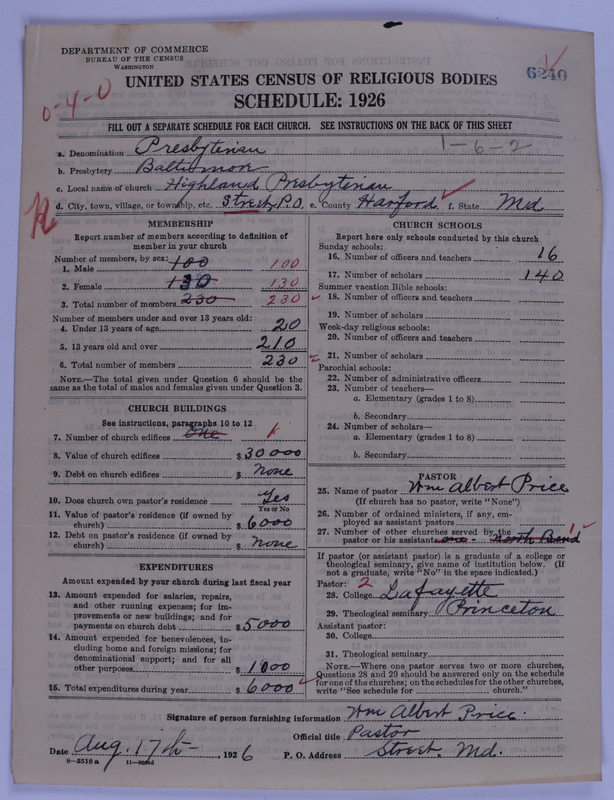 DEPARTMENT OF COMMERCE
BUREAU OF THE CENSUS
WASHINGTON
6240
UNITED STATES CENSUS OF RELIGIOUS BODIES
0-4-0
SCHEDULE: 1926
FILL OUT A SEPARATE SCHEDULE FOR EACH CHURCH. SEE INSTRUCTIONS ON THE BACK OF THIS SHEET
1-6-2
a. Denomination Presbyterian
b. Presbytery Baltimore
c. Local name of church Highland Presbyterian
d. City, town, village, or township, etc. Street P.O. e. County Harford f. State Md
MEMBERSHIP
Report number of members according to definition of
member in your church
Number of members, by sex:
1. Male 100 100
2. Female 130 130
3. Total number of members 230 230
Number of members under and over 13 years old:
4. Under 13 years of age 20
5. 13 years old and over 210
6. Total number of members 230
NOTE.—The total given under Question 6 should be
same as the total of males and females given under Question 3.
CHURCH BUILDINGS
See instructions, paragraphs 10 to 12
7. Number of church edifices One 1
8. Value of church edifices $ 30000
9. Debt on church edifices $ None
10. Does church own pastor's residence Yes
Yes or No
11. Value of pastor's residence (if owned by
church) $ 6000
12. Debt on pastor's residence (if owned by
church) $ None
EXPENDITURES
Amount expended by your church during last fiscal year
13. Amount expended for salaries, repairs,
and other running expenses; for im-
provements or new buildings; and for
payments on church debt $ 5000
14. Amount expended for benevolences, in-
cluding home and foreign missions; for
denominational support; and for all
other purposes $ 1000
15. Total expenditures during year $ 6000
CHURCH SCHOOLS
Report here only schools conducted by this church
Sunday schools:
16. Number of officers and teachers 16
17. Number of scholars 140
Summer vacation Bible schools:
18. Number of officers and teachers
19. Number of scholars
Week-day religious schools:
20. Number of officers and teachers
21. Number of scholars
Parochial schools:
22. Number of administrative officers
23. Number of teachers—
a. Elementary (grades 1 to 8)
b. Secondary
24. Number of scholars—
a. Elementary (grades 1 to 8)
b. Secondary
PASTOR
25. Name of pastor Wm Albert Price
(If church has no pastor, write "None")
26. Number of ordained ministers, if any, em-
ployed as assistant pastors
27. Number of other churches served by the
pastor or his assistants one - North Bend 1
If pastor (or assistant pastor) is a graduate of a college or
theological seminary, give name of institution below. (If
not a graduate, write "No" in the space indicated.)
Pastor: 2
28. College Lafayette
29. Theological seminary Princeton
Assistant pastor:
30. College
31. Theological seminary
NOTE.—Where one pastor serves two or more churches,
Questions 28 and 29 should be answered only on the schedule
for one of the churches; on the schedules for the other churches,
write "See schedule for church."
Signature of person furnishing information Wm Albert Price.
Official title Pastor
Date Aug. 17th, 1926 P. O. Address Street. Md.
8-5518 a